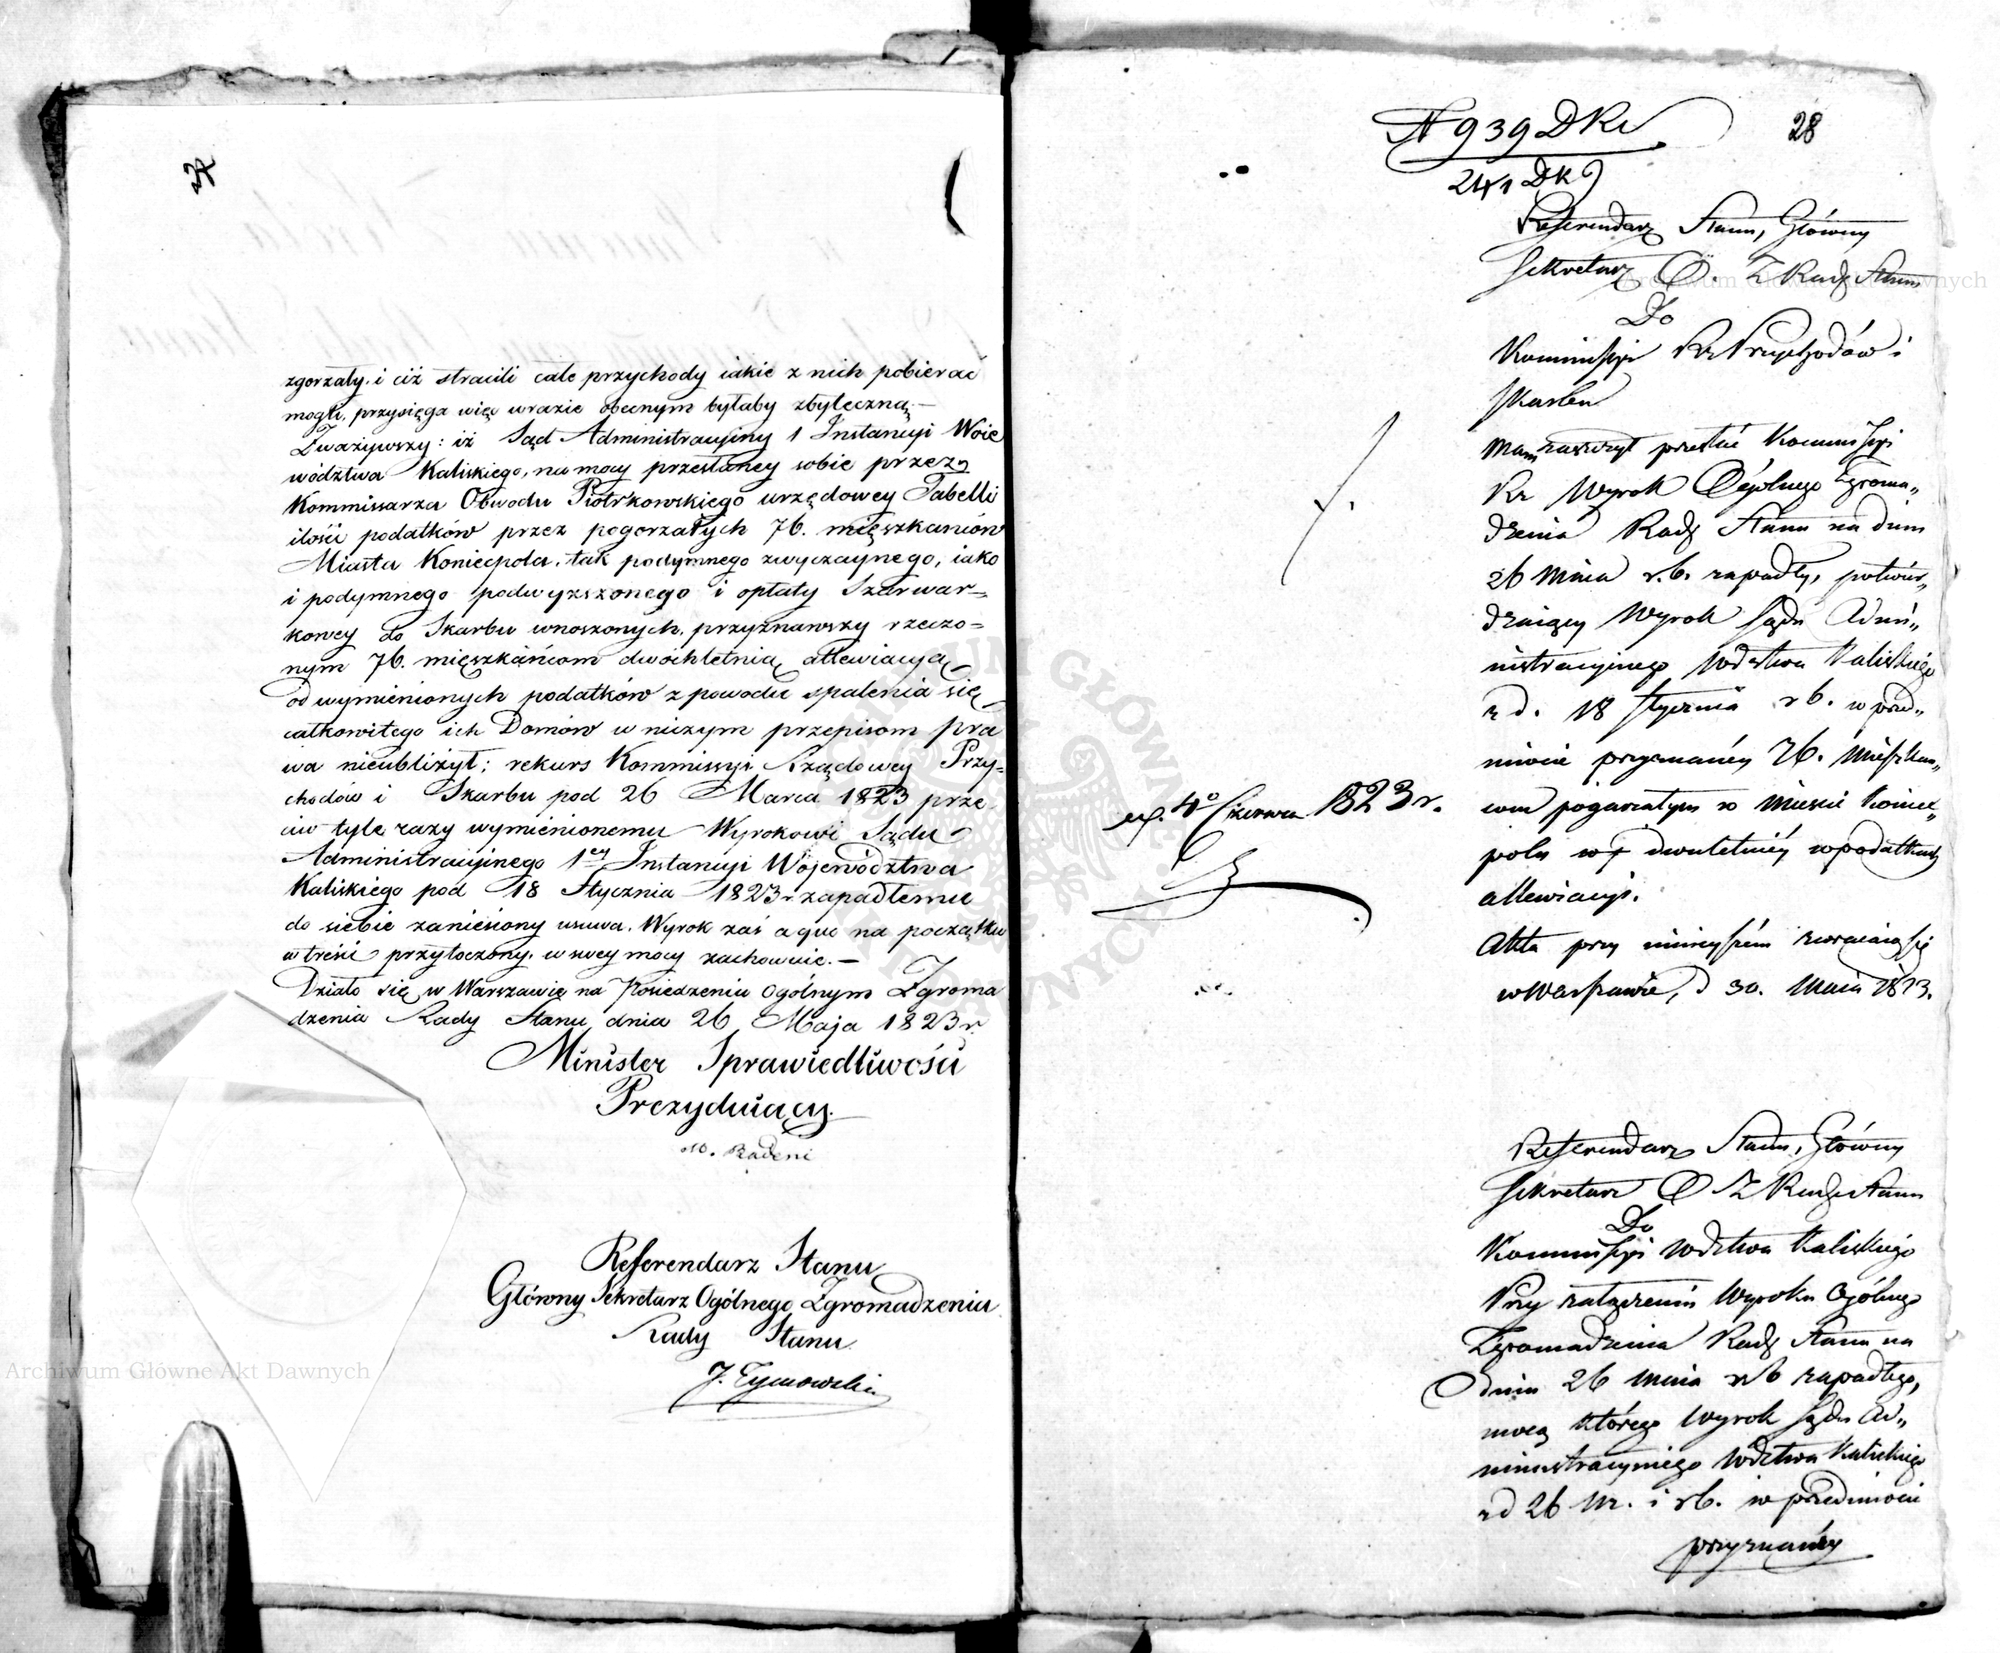 zgorzały, i ciż stracili całe przychody iakie z nich pobierać
mogli, przysięga więc wrazie obecnym byłaby zbyteczną.—
Zważywszy: iż Sąd Administracyiny 1 Instancyi Woie
wództwa Kaliskiego, na mocy przesłaney sobie przez
Kommissarza Obwodu Piotrkowskiego urzędowey Tabelli
ilości podatków przez pogorzałych 76. mięszkańców
Miasta Koniecpola, tak podymnego zwyczaynego, iako
i podymnego podwyższonego i opłaty Szarwar=
kowey do Skarbu wnoszonych, przyznawszy rzeczo=
nym 76. mięszkańcom dwóchletnią allewiacyą
od wymienionych podatków z powodu spalenia się
całkowitego ich Domów w niczym przepisom pra
wa nieubliżył; rekurs Kommissyi Rządowey Przy=
chodów i Skarbu pod 26 Marca 1823 prze
ciw tyle razy wymienionemu Wyrokowi Sądu
Administracyinego 1ey Instancyi Województwa
Kaliskiego pod 18 Stycznia 1823 r. zapadłemu
do siebie zaniesiony usuwa, Wyrok zaś a quo na początku
w treści przytoczony, w swey mocy zachowuie.—
Działo się w Warszawie na Posiedzeniu Ogólnym Zgroma
dzenia Rady Stanu dnia 26 Maja 1823 r.
Minister Sprawiedliwości
Prezyduiący
M. Badeni
Referendarz Stanu
Główny Sekretarz Ogólnego Zgromadzenia
Rady Stanu
J. Tymowski
28
N 939 DKs
241 DK
Referendarz Stanu, Główny
Sekretarz O. Z Rady Stanu
Do
Kommissyi Rz Przychodów i
Skarbu
Mam zaszczyt przesłać Kommissyi
Rz Wyrok Ogólnego Zgroma„
dzenia Rady Stanu na dniu
26 Maia r.b. zapadły, potwier„
dzaiący Wyrok Sądu Admi„
nistracyinego Wdztwa Kaliskiego
z d. 18 Stycznia r b. w przed„
miocie przyznanéy 76. Mieszkań„
com pogorzałym w Mieście Koniec„
polu dwuletniéy w podatkach
allewiacyi.
Akta przy ninieyszém zwracaią się
w Warszawie, d 30. Maia 1823.
ex. 4° Czerwca 1823 r.
Referendarz Stanu, Główny
Sekretarz O Z Rady Stanu
Do
Kommissyi Wdztwa Kaliskiego
Przy załączeniu Wyroku Ogólnego
Zgromadzenia Rady Stanu na
dniu 26 Maia r b zapadłego,
mocą którego Wyrok Sądu Ad„
ministracyinego Wdztwa Kaliskiego
z d 26 m. i r b. w przedmiocie
przyznanéy
Archiwum Główne Akt Dawnych
Archiwum Główne Akt Dawnych